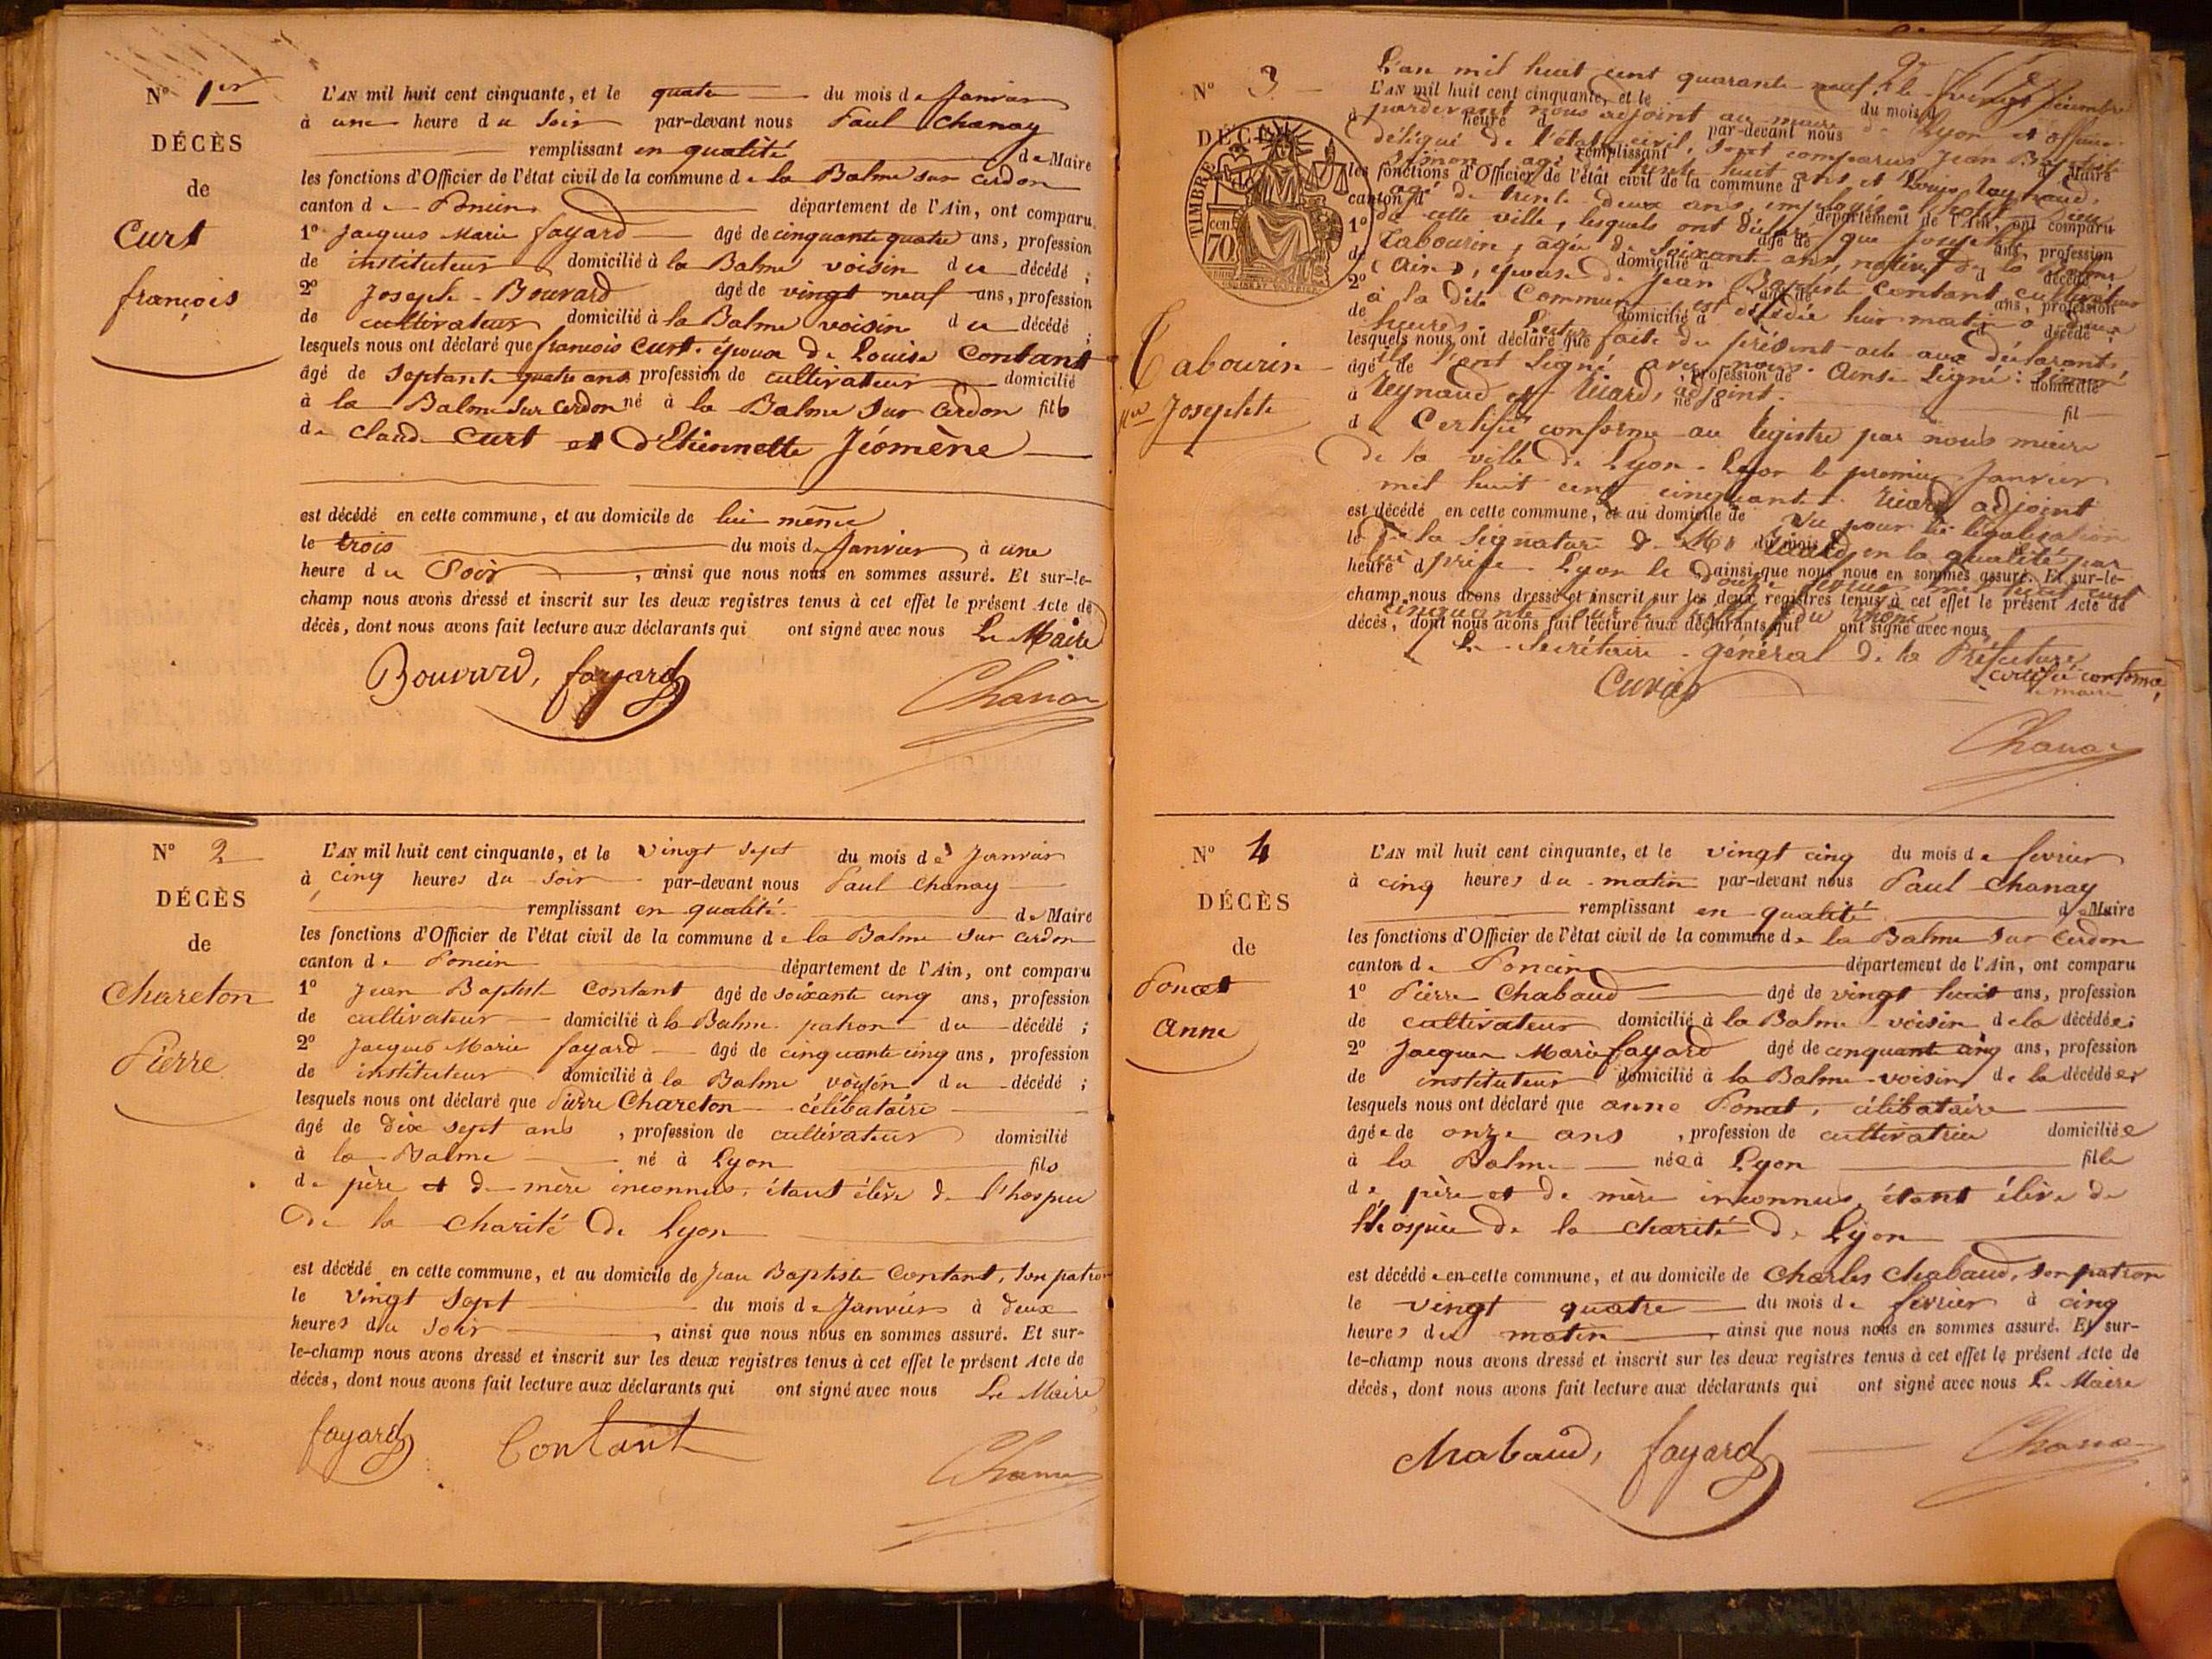 N° 1er
DÉCÈS
de
Curt
françois
L'AN mil huit cent cinquante, et le quatre du mois de Janvier
à une heure du Soir par-devant nous Paul Chanay
remplissant en qualité de Maire
les fonctions d'Officier de l'état civil de la commune de la Balme sur Cerdon
canton de Poncin département de l'Ain, ont comparu
1° Jacques Marie fayard âgé de cinquante quatre ans, profession
de instituteur domicilié à la Balme voisin du décédé ;
2° Joseph Bouvard âgé de vingt neuf ans, profession
de cultivateur domicilié à la Balme voisin du décédé ;
lesquels nous ont déclaré que françois Curt, époux de Louise Contant
âgé de septante quatre ans profession de cultivateur domicilié
à la Balme sur Cerdon né à la Balme sur Cerdon fils
de Claude Curt et d'Etiennette Jiomène
est décédé en cette commune, et au domicile de lui même
le trois du mois de Janvier à une
heure du Soir, ainsi que nous nous en sommes assuré. Et sur-le-
champ nous avons dressé et inscrit sur les deux registres tenus à cet effet le présent Acte de
décès, dont nous avons fait lecture aux déclarants qui ont signé avec nous Le Maire
Bouvard, fayard
Chanay
N° 2
DÉCÈS
de
Chareton
Pierre
L'AN mil huit cent cinquante, et le vingt sept du mois de Janvier
à cinq heures du Soir par-devant nous Paul Chanay
remplissant en qualité de Maire
les fonctions d'Officier de l'état civil de la commune de la Balme sur Cerdon
canton de Poncin département de l'Ain, ont comparu
1° Jean Baptiste Contant âgé de soixante cinq ans, profession
de cultivateur domicilié à la Balme patron du décédé ;
2° Jacques Marie fayard âgé de cinquante cinq ans, profession
de instituteur domicilié à la Balme voisin du décédé ;
lesquels nous ont déclaré que Pierre Chareton célibataire
âgé de dix sept ans, profession de cultivateur domicilié
à la Balme né à Lyon fils
de père et de mère inconnus, étant élève de l'hospice
de la Charité de Lyon
est décédé en cette commune, et au domicile de Jean Baptiste Contant, son patron
le vingt sept du mois de Janvier à deux
heures du Soir, ainsi que nous nous en sommes assuré. Et sur-
le-champ nous avons dressé et inscrit sur les deux registres tenus à cet effet le présent Acte de
décès, dont nous avons fait lecture aux déclarants qui ont signé avec nous Le Maire
fayard Contant
Chanay
N° 3
DÉCÈS
TIMBRE
70 cen.
Tabourin
Josephte
L'an mil huit cent quarante neuf & le vingt Décembre
L'AN mil huit cent cinquante, et le du mois d
pardevant nous adjoint au maire de Lyon et officier
à heure d par-devant nous
délégué de l'état civil, sont comparus Jean Baptiste
remplissant d Maire
Simon, agé trente huit ans et Louis Raynaud,
les fonctions d'Officier de l'état civil de la commune d
agé de trente deux ans, employés
canton d département de l'Ain, ont comparu
de cette ville, lesquels ont déclaré que Josephte
1° âgé de ans, profession
Tabourin, agée de soixante ans, native de la Balme
de domicilié à d décédé ;
(Ain), épouse de Jean Baptiste Contant cultivateur
2° âgé de ans, profession
à la dite Commune est décédée hier matin à deux
de domicilié à d décédé ;
heures. Lecture faite du présent acte aux déclarants
lesquels nous ont déclaré que
ils l'ont signé avec nous. Ainsi signé : Simon
âgé de profession de domicilié
Reynaud et Ricard, adjoint.
à né à fil
d Certifié conforme au registre par nous maire
de la ville de Lyon. Lyon le premier Janvier
mil huit cent cinquante. Ricard adjoint
est décédé en cette commune, et au domicile de
Vu pour la légalisation
le du mois d
de la signature de Mr Ricard, en la qualité par
lui prise. Lyon le
heure d ainsi que nous nous en sommes assuré. Et sur-le-
mil huit cent
champ nous avons dressé et inscrit sur les deux registres tenus à cet effet le présent Acte de
cinquante, pour le préfet du Rhône
décès, dont nous avons fait lecture aux déclarants qui ont signé avec nous
Le Secrétaire général de la Préfecture
certifié conforme
maire
Chanay
N° 4
DÉCÈS
de
Poncet
Anne
L'AN mil huit cent cinquante, et le vingt cinq du mois de fevrier
à cinq heures du matin par-devant nous Paul Chanay
remplissant en qualité de Maire
les fonctions d'Officier de l'état civil de la commune de la Balme sur Cerdon
canton de Poncin département de l'Ain, ont comparu
1° Pierre Chabaud âgé de vingt huit ans, profession
de cultivateur domicilié à la Balme voisin de la décédée ;
2° Jacques Marie fayard âgé de cinquante cinq ans, profession
de instituteur domicilié à la Balme voisin de la décédée ;
lesquels nous ont déclaré que anne Poncet, célibataire
âgée de onze ans, profession de cultivatrice domiciliée
à la Balme née à Lyon fille
de père et de mère inconnus, étant élève de
l'hospice de la charité de Lyon
est décédée en cette commune, et au domicile de Charles Chabaud, son patron
le vingt quatre du mois de fevrier à cinq
heures du matin, ainsi que nous nous en sommes assuré. Et sur-
le-champ nous avons dressé et inscrit sur les deux registres tenus à cet effet le présent Acte de
décès, dont nous avons fait lecture aux déclarants qui ont signé avec nous Le Maire
Chabaud, fayard
Chanay